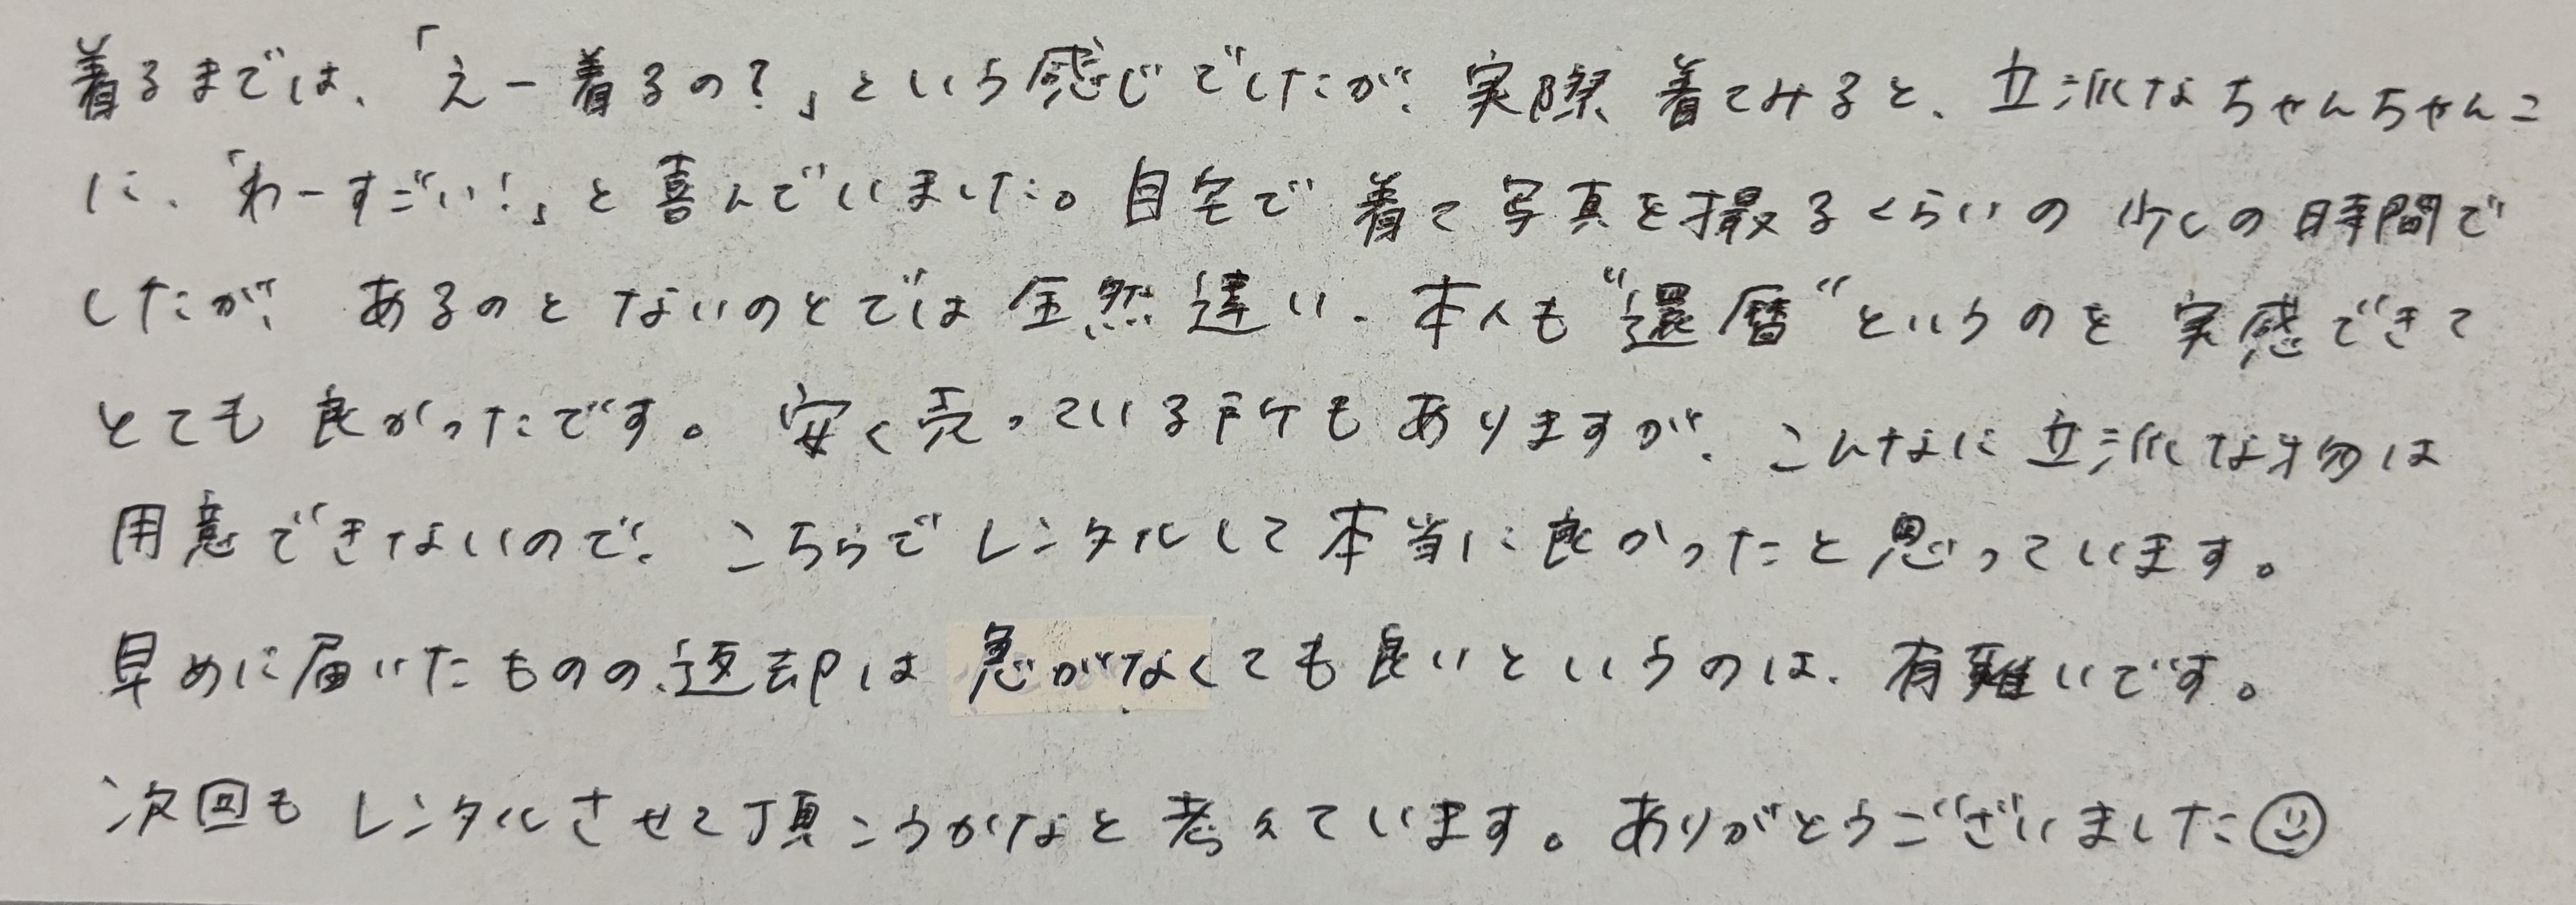 着るまでは、「えー着るの?」という感じでしたが、実際着てみると、立派なちゃんちゃんこ
に、「わーすごい!」と喜んでいました。自宅で着て写真を撮るくらいの少しの時間で
したが、あるのとないのとでは全然違い、本人も"還暦"というのを実感できて
とても良かったです。安く売っている所もありますが、こんなに立派な物は
用意できないので、こちらでレンタルして本当に良かったと思っています。
早めに届いたものの返却は急がなくても良いというのは、有難いです。
次回もレンタルさせて頂こうかなと考えています。ありがとうございました☺